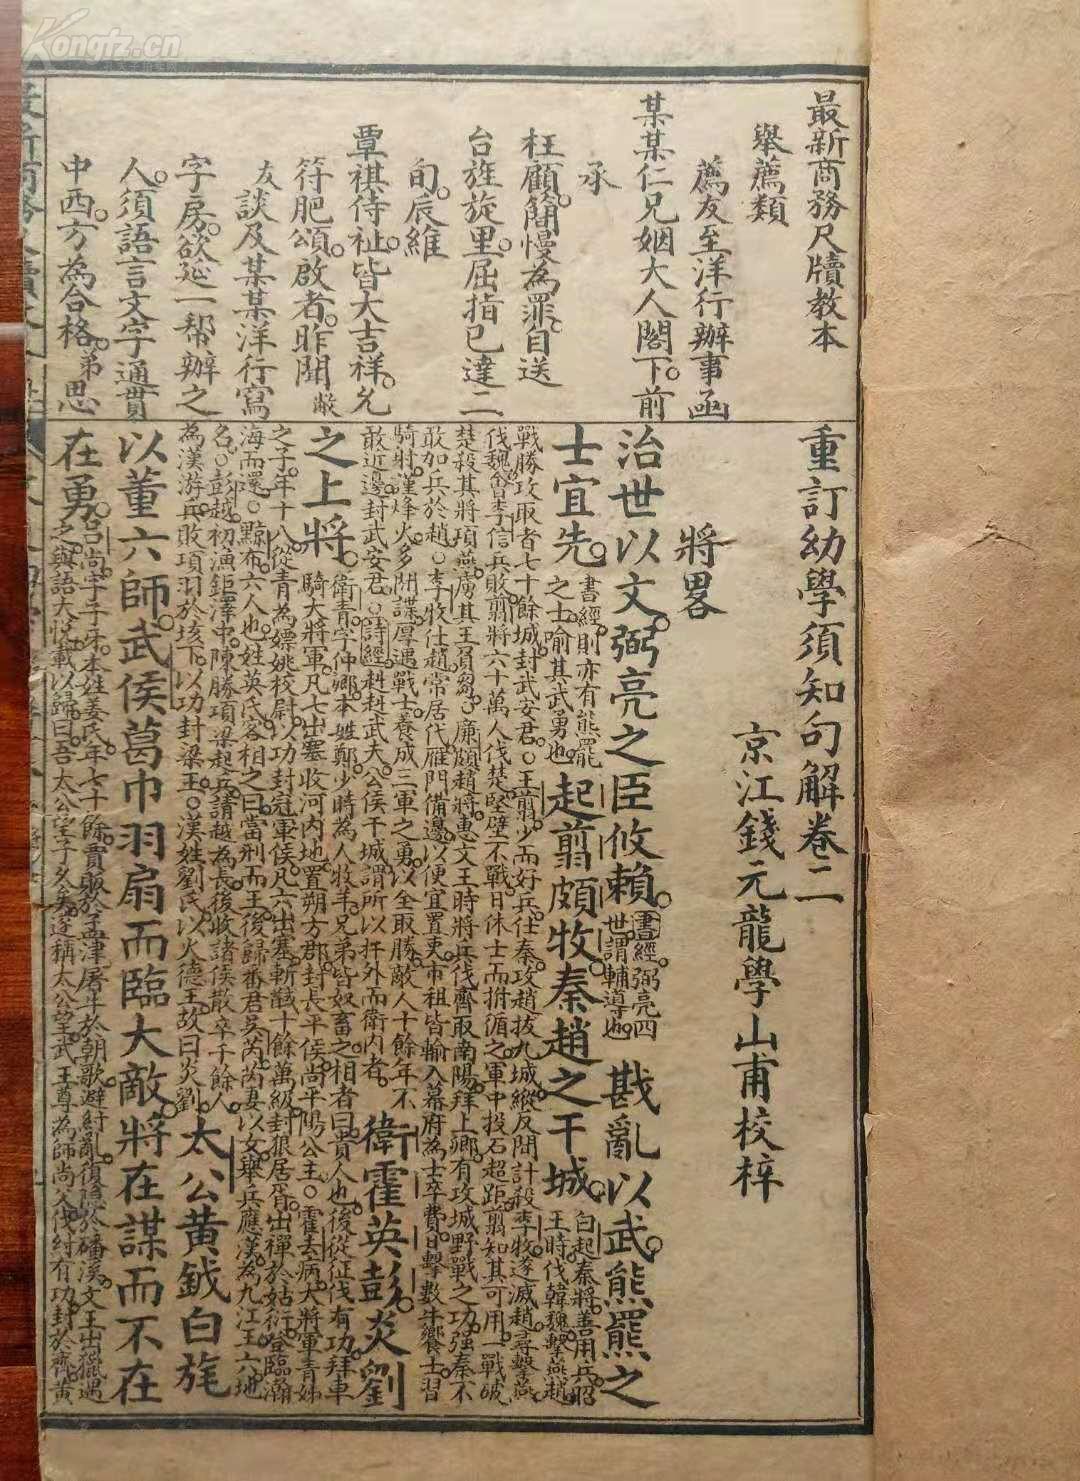 Kongfz.cn
最新商務尺牘教本
舉薦類
薦友至洋行辦事函
某某仁兄姻大人閣下。前
承
枉顧。簡慢為罪。自送
台旌旋里。屈指已達二
旬。辰維
覃祺侍祉。皆大吉祥。允
符肥頌。啟者。昨聞敝
友談及某某洋行寫
字房。欲延一帮辦之
人。須語言文字。通貫
中西。方為合格。弟思
重訂幼學須知句解卷二
京江錢元龍學山甫校梓
將畧
治世以文。弼亮之臣攸賴。書經弼亮四世謂輔導也 戡亂以武。熊羆之
士宜先。書經則亦有熊羆之士喻其武勇也 起翦頗牧。秦趙之干城。白起秦將善用兵昭王時伐韓魏擊燕趙
戰勝攻取者七十餘城封武安君○王翦少而好兵仕秦攻趙拔九城縱反間計殺李牧遂滅趙尋擊燕
伐魏會李信兵敗翦將六十萬人伐楚堅壁不戰日休士而拊循之軍中投石超距翦知其可用一戰破
楚殺其將項燕虜其王負芻○廉頗趙將惠文王時將兵伐齊取南陽拜上卿有攻城野戰之功強秦不
敢加兵於趙○李牧仕趙常居代雁門備邊以便宜置吏市租皆輸入幕府為士卒費日擊數牛饗士習
騎射謹烽火多間諜厚遇戰士養成三軍之勇以全取勝敵人十餘年不
敢近邊封武安君○詩經赳赳武夫公侯干城謂所以扞外而衛內者 衛霍英彭。炎劉
之上將。衛青字仲卿本姓鄭少時為人牧羊兄弟皆奴畜之相者曰貴人也後從征伐有功拜車
騎大將軍凡七出塞收河內地置朔方郡封長平侯尚平陽公主○霍去病大將軍青姊
之子年十八從青為嫖姚校尉以功封冠軍侯凡六出塞斬馘十餘萬級封狼居胥出禪於姑衍登臨瀚
海而還○黥布六人也姓英氏客相之曰當刑而王後歸番君吳芮芮妻以女舉兵應漢為九江王六地
名○彭越初漁鉅澤中陳勝項梁起兵請越為長後收諸侯散卒千餘人
為漢游兵敗項羽於垓下以功封梁王○漢姓劉氏以火德王故曰炎劉 太公黃鉞白旄
以董六師。武侯葛巾羽扇而臨大敵。將在謀而不在
在勇。呂尚字子牙本姓姜氏年七十餘賣販於孟津屠牛於朝歌避紂亂復隱於磻溪文王出獵遇
之與語大悅載以歸曰吾太公望子久矣遂稱太公望武王尊為師尚父伐紂有功封於齊黃